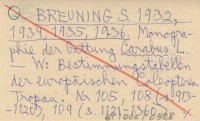 BREUNING S. 1932,
1934, 1935, 1936. Monogra-
phie der Gattung Carabus L.
— W: Bestimmungstabellen
der europäischen Coleopteren
Troppau. Nr 105, 108 (s. 913-
-1120), 109 (s. 1121-1360)